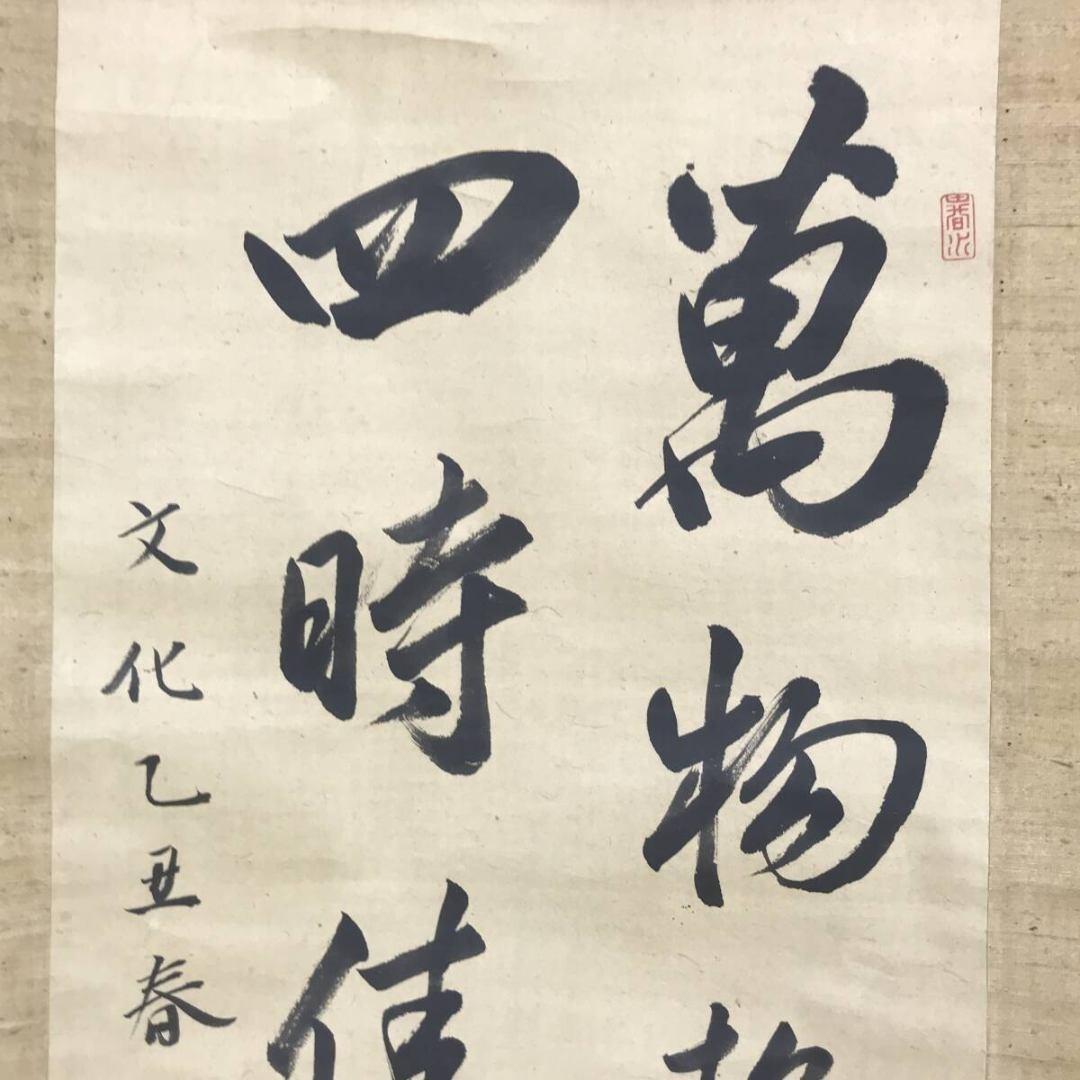 萬物
四時佳
文化乙丑春